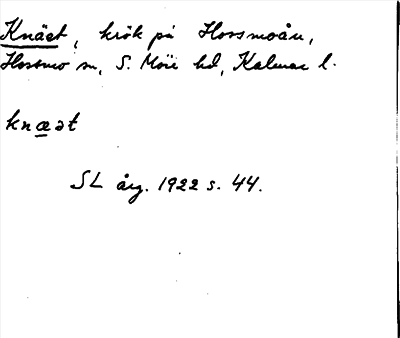 Knäet, krök på Hossmoån,
Hossmo sn, S. Möre hd, Kalmar l.
knæət
SL årg. 1922 s. 44.